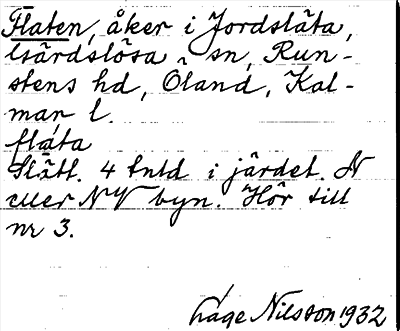 Flaten, åker i Jordslåta,
Gärdslösa sn, Run-
stens hd, Öland, Kal-
mar l.
flata
Slätt. 4 tnld i järdet. N
eller NV byn. Hör till
nr 3.
Låge Nilsson 1932